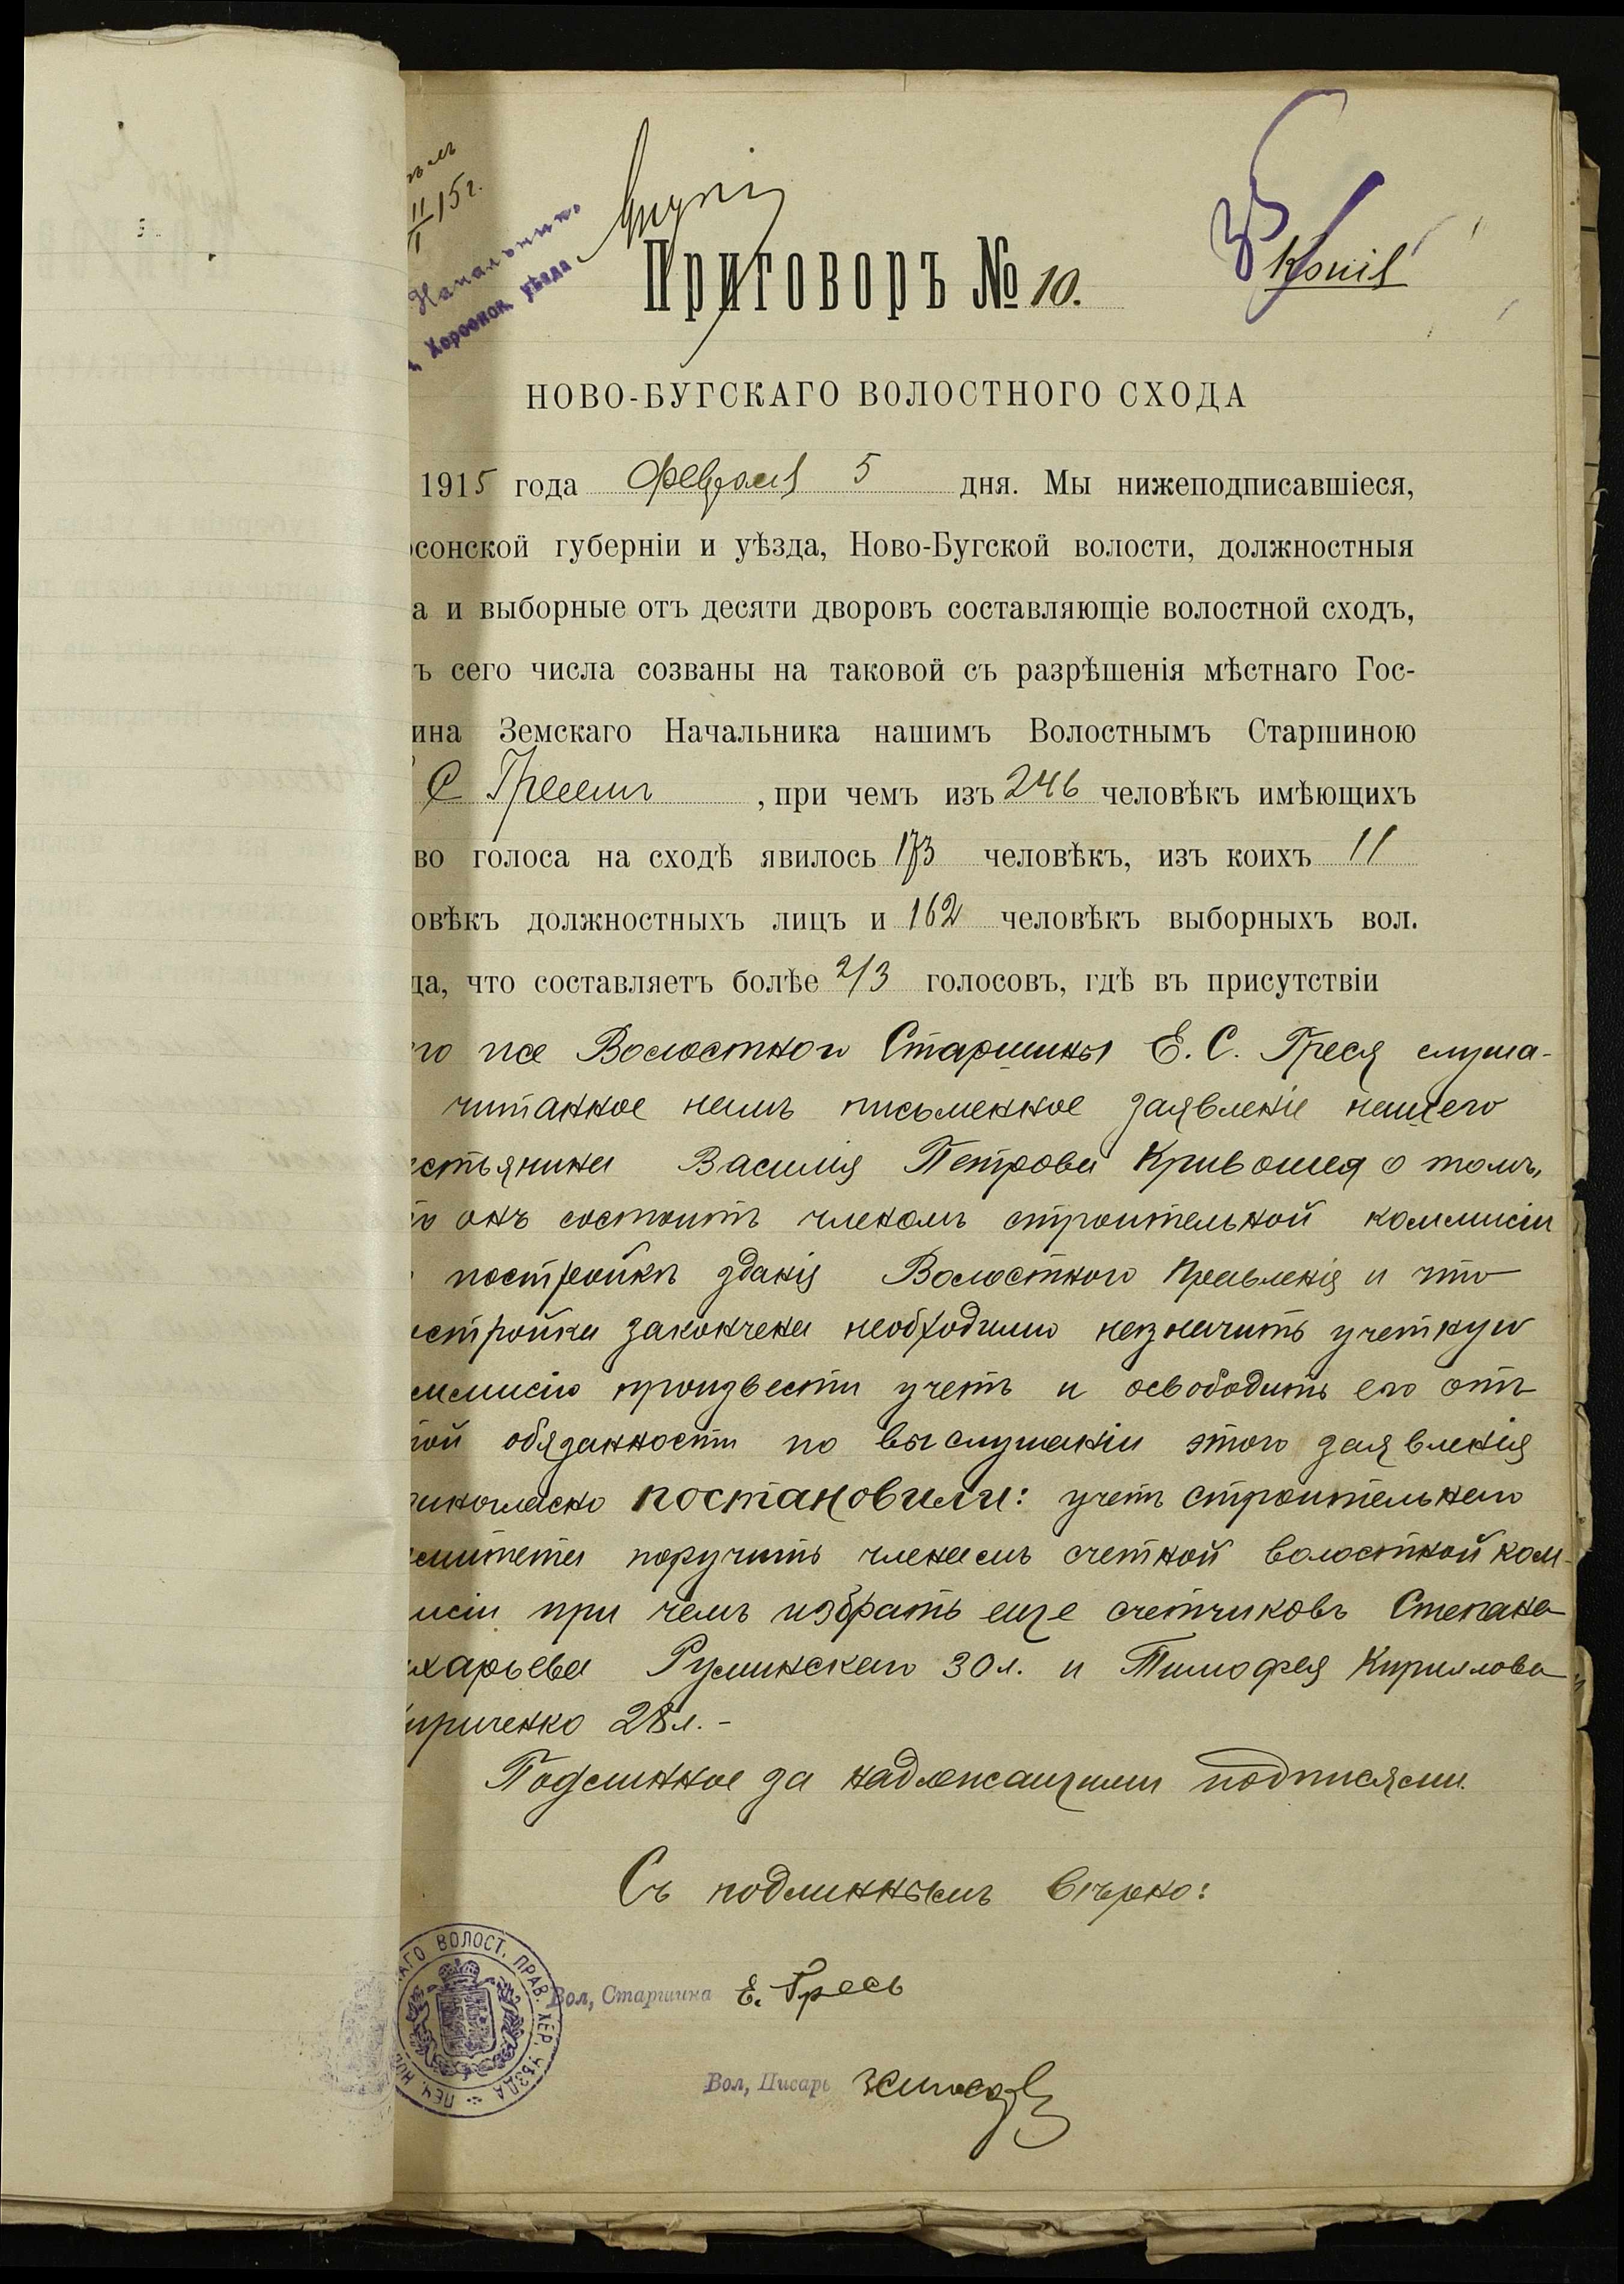 II
15г.
Начальникъ
Херсонск. уѣзда
Приговоръ № 10.
Копія
НОВО-БУГСКАГО ВОЛОСТНОГО СХОДА
1915 года Февраля 5 дня. Мы нижеподписавшіеся,
рсонской губерніи и уѣзда, Ново-Бугской волости, должностныя
а и выборные отъ десяти дворовъ составляющіе волостной сходъ,
ъ сего числа созваны на таковой съ разрѣшенія мѣстнаго Гос-
ина Земскаго Начальника нашимъ Волостнымъ Старшиною
С Гресемъ, при чемъ изъ 246 человѣкъ имѣющихъ
во голоса на сходѣ явилось 173 человѣкъ, изъ коихъ 11
овѣкъ должностныхъ лицъ и 162 человѣкъ выборныхъ вол.
да, что составляетъ болѣе 2/3 голосовъ, гдѣ въ присутствіи
го же Волостного Старшины Е. С. Греся слуша-
читанное намъ письменное заявленіе нашего
естьянина Василія Петрова Кривошея о томъ,
то онъ состоитъ членомъ строительной коммисіи
постройкѣ зданія Волостного Правленія и что
остройка закончена необходимо назначить учетную
ммисію произвести учетъ и освободить его отъ
той обязанности по выслушаніи этого заявленія
диногласно постановили: учетъ строительнаго
омитета поручить членамъ счетной волостной ком-
мисіи при чемъ избрать еще счетчиковъ Степана
ахарьева Руминскаго 30 л. и Тимофея Кириллова
Кириченко 28 л.-
Подлинное за надлежащими подписями.
Съ подлиннымъ вѣрно:
АГО ВОЛОСТ. ПРАВ. ХЕР. УѢЗДА ПЕЧ. НОВ
Вол, Старшина Е. Гресь
Вол, Писарь